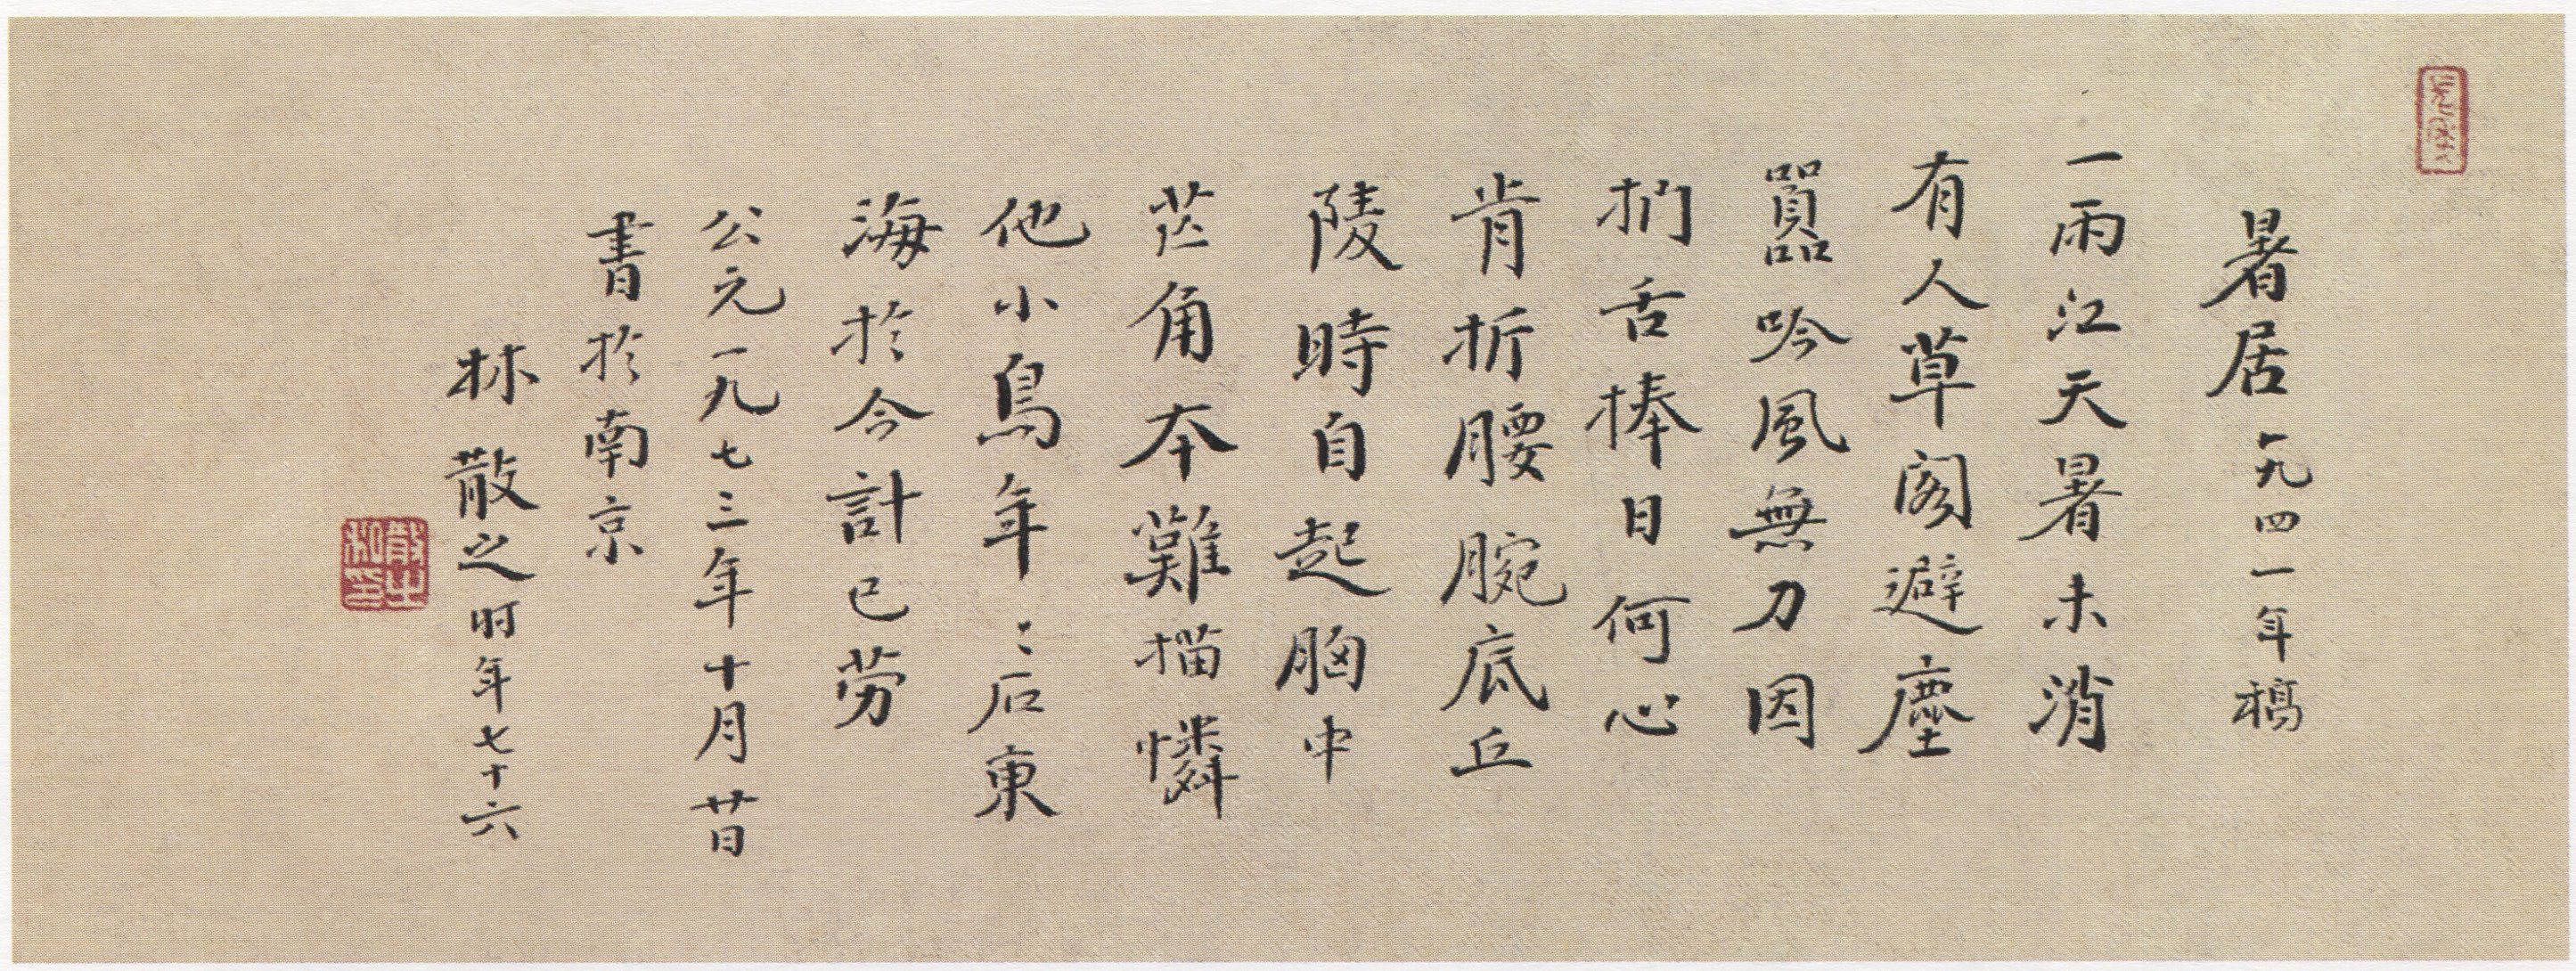 暑居一九四一年稿
一雨江天暑未消
有人草阁避塵
囂吟風無力因
捫舌捧日何心
肯折腰腕底丘
陵時自起胸中
芒角本難描憐
他小鳥年〻石東
海於今計已劳
公元一九七三年十月昔
書於南京
林散之时年七十六
散之